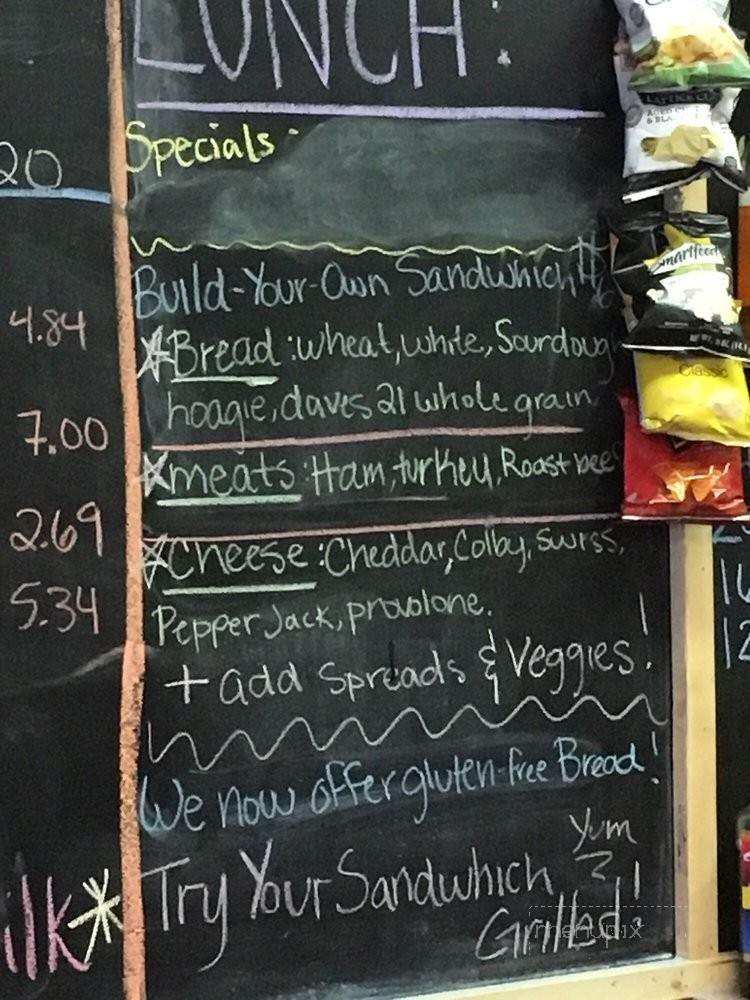 LUNCH:
Specials
20
Build-Your-Own Sandwhich
4.84
Bread: wheat, white, Sourdoug
hoagie, daves 21 whole grain
7.00
meats: Ham, turkey, Roast bee
2.69
Cheese: Cheddar, Colby, swiss,
5.34
Pepper Jack, provolone.
+ add Spreads & Veggies!
We now offer gluten-free Bread!
Try Your Sandwhich
Yum
Grilled
ilk*
Smartfood
Classic
menupix